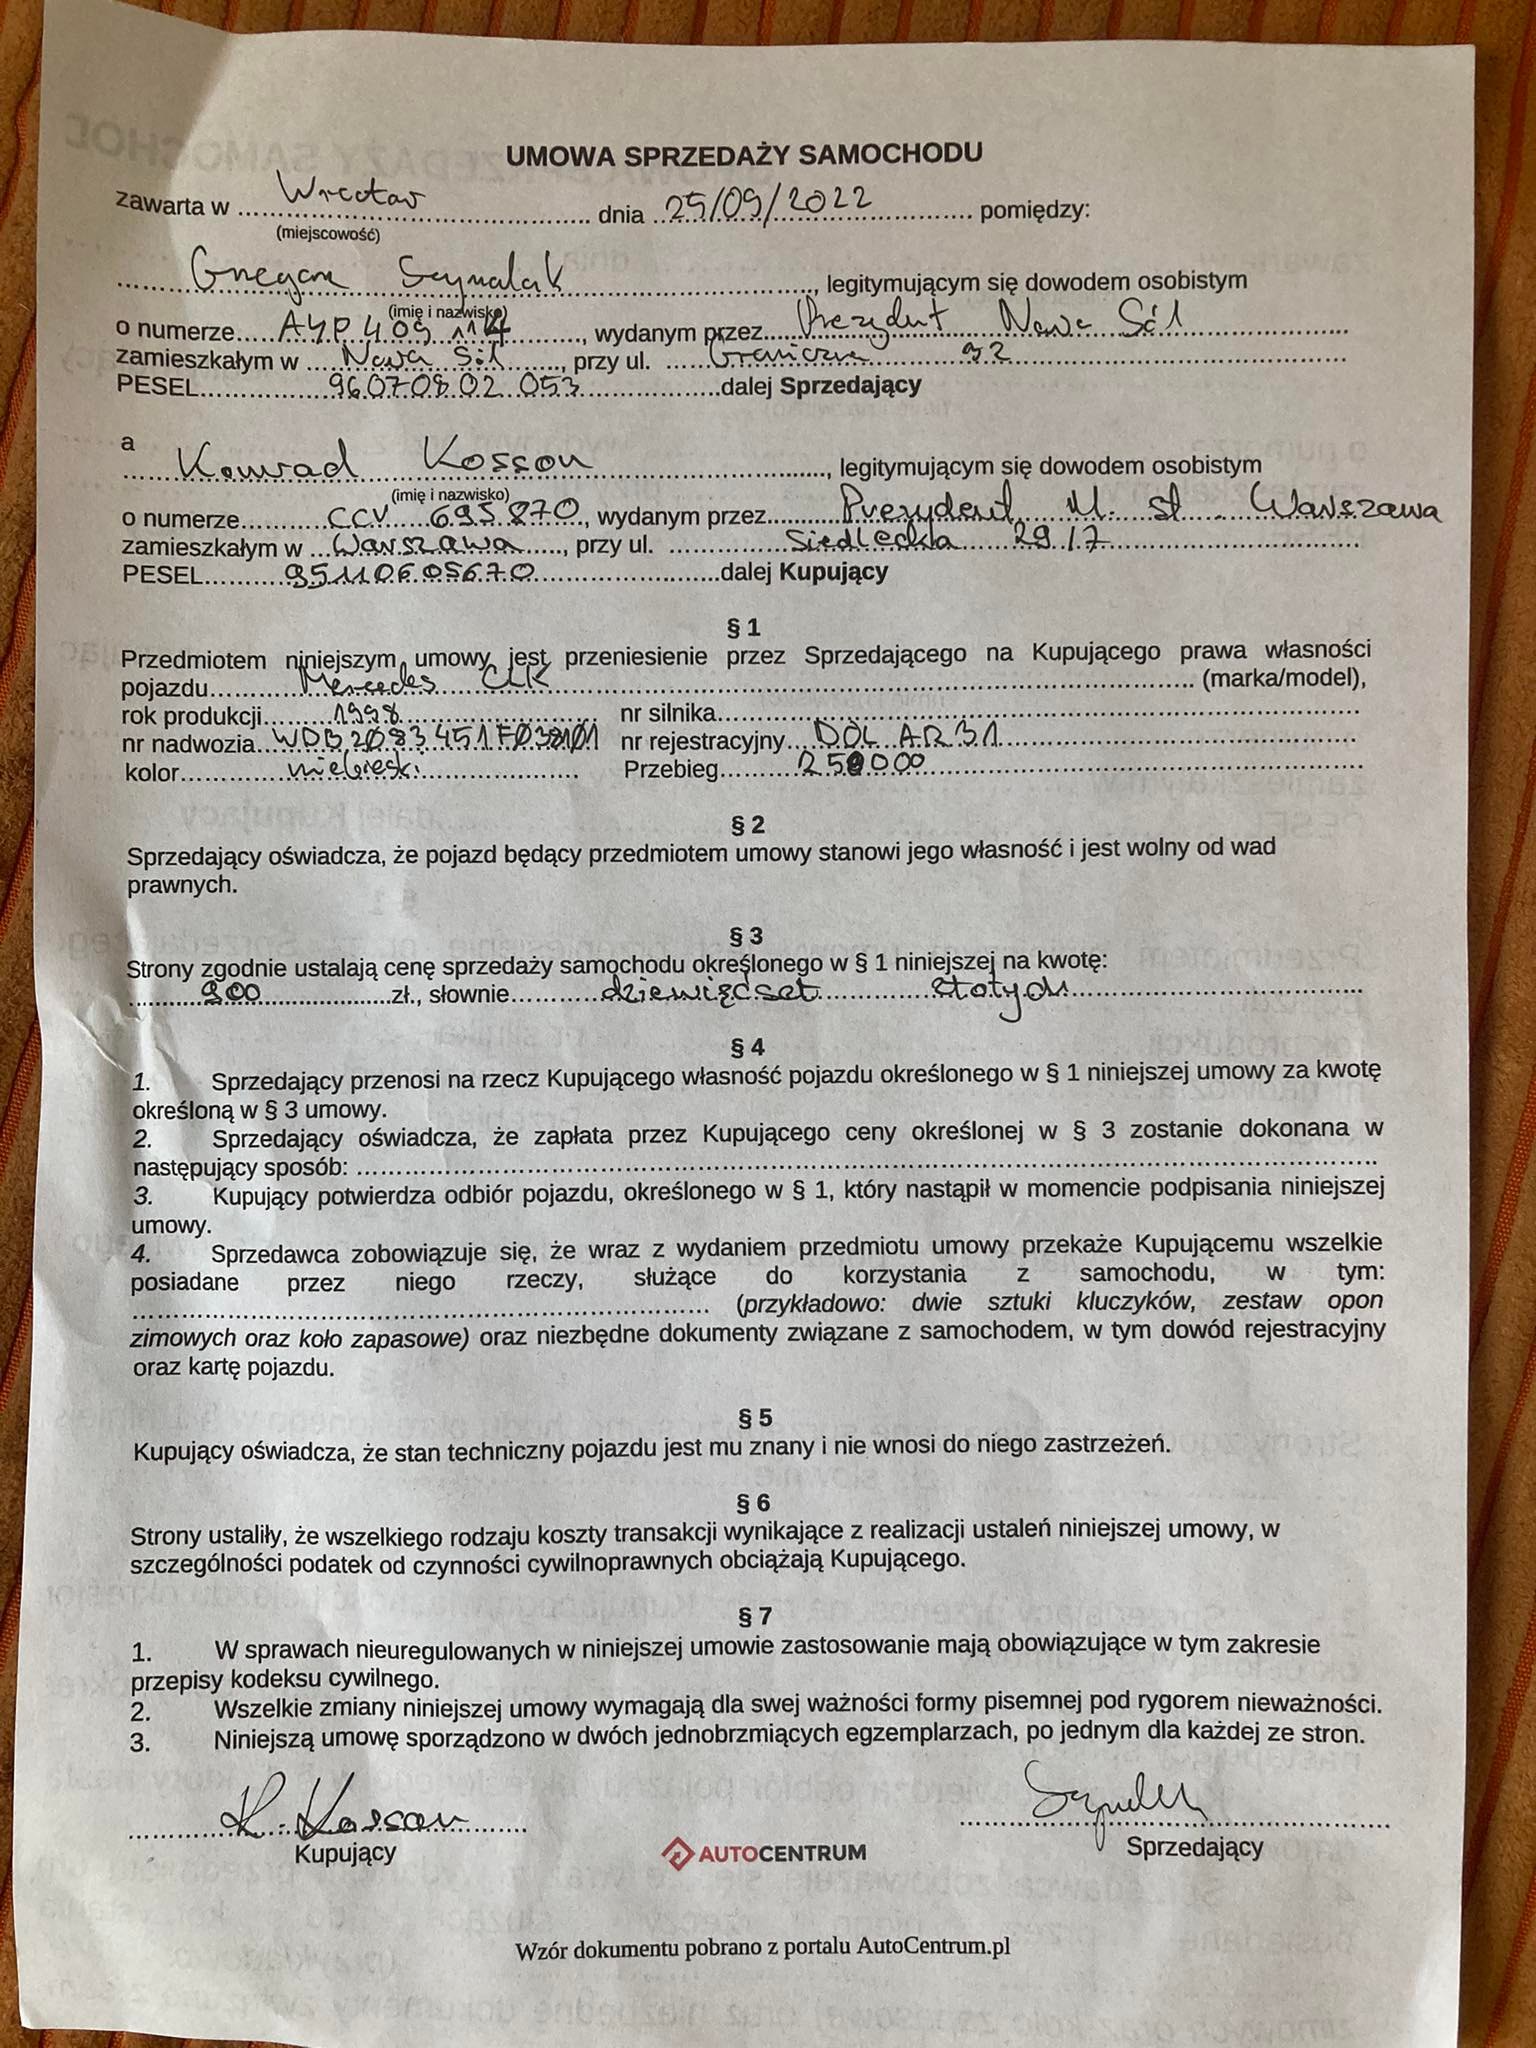 UMOWA SPRZEDAŻY SAMOCHODU
zawarta w Wrocław dnia 25/09/2022 pomiędzy:
(miejscowość)
legitymującym się dowodem osobistym
(imię i nazwisko)
o numerze AYP 409 114, wydanym przez Prezydent Nowa Sól
zamieszkałym w Nowa Sól, przy ul. Graniczna 92
PESEL 96070802053 dalej Sprzedający
a
Konrad Kosson, legitymującym się dowodem osobistym
(imię i nazwisko)
o numerze CCV 695870, wydanym przez Prezydent M. st. Warszawa
zamieszkałym w Warszawa, przy ul. Siedlecka 29/7
PESEL 95110605670 dalej Kupujący
§ 1
Przedmiotem niniejszym umowy jest przeniesienie przez Sprzedającego na Kupującego prawa własności
pojazdu Mercedes CLK (marka/model),
rok produkcji 1998 nr silnika
nr nadwozia nr rejestracyjny DOL AR31
kolor niebieski Przebieg 250000
§ 2
Sprzedający oświadcza, że pojazd będący przedmiotem umowy stanowi jego własność i jest wolny od wad
prawnych.
§ 3
Strony zgodnie ustalają cenę sprzedaży samochodu określonego w § 1 niniejszej na kwotę:
900 zł., słownie dziewięćset złotych
§ 4
1. Sprzedający przenosi na rzecz Kupującego własność pojazdu określonego w § 1 niniejszej umowy za kwotę
określoną w § 3 umowy.
2. Sprzedający oświadcza, że zapłata przez Kupującego ceny określonej w § 3 zostanie dokonana w
następujący sposób:
3. Kupujący potwierdza odbiór pojazdu, określonego w § 1, który nastąpił w momencie podpisania niniejszej
umowy.
4. Sprzedawca zobowiązuje się, że wraz z wydaniem przedmiotu umowy przekaże Kupującemu wszelkie
posiadane przez niego rzeczy, służące do korzystania z samochodu, w tym:
(przykładowo: dwie sztuki kluczyków, zestaw opon
zimowych oraz koło zapasowe) oraz niezbędne dokumenty związane z samochodem, w tym dowód rejestracyjny
oraz kartę pojazdu.
§ 5
Kupujący oświadcza, że stan techniczny pojazdu jest mu znany i nie wnosi do niego zastrzeżeń.
§ 6
Strony ustaliły, że wszelkiego rodzaju koszty transakcji wynikające z realizacji ustaleń niniejszej umowy, w
szczególności podatek od czynności cywilnoprawnych obciążają Kupującego.
§ 7
1. W sprawach nieuregulowanych w niniejszej umowie zastosowanie mają obowiązujące w tym zakresie
przepisy kodeksu cywilnego.
2. Wszelkie zmiany niniejszej umowy wymagają dla swej ważności formy pisemnej pod rygorem nieważności.
3. Niniejszą umowę sporządzono w dwóch jednobrzmiących egzemplarzach, po jednym dla każdej ze stron.
K. Kosson
Kupujący AUTOCENTRUM Sprzedający
Wzór dokumentu pobrano z portalu AutoCentrum.pl